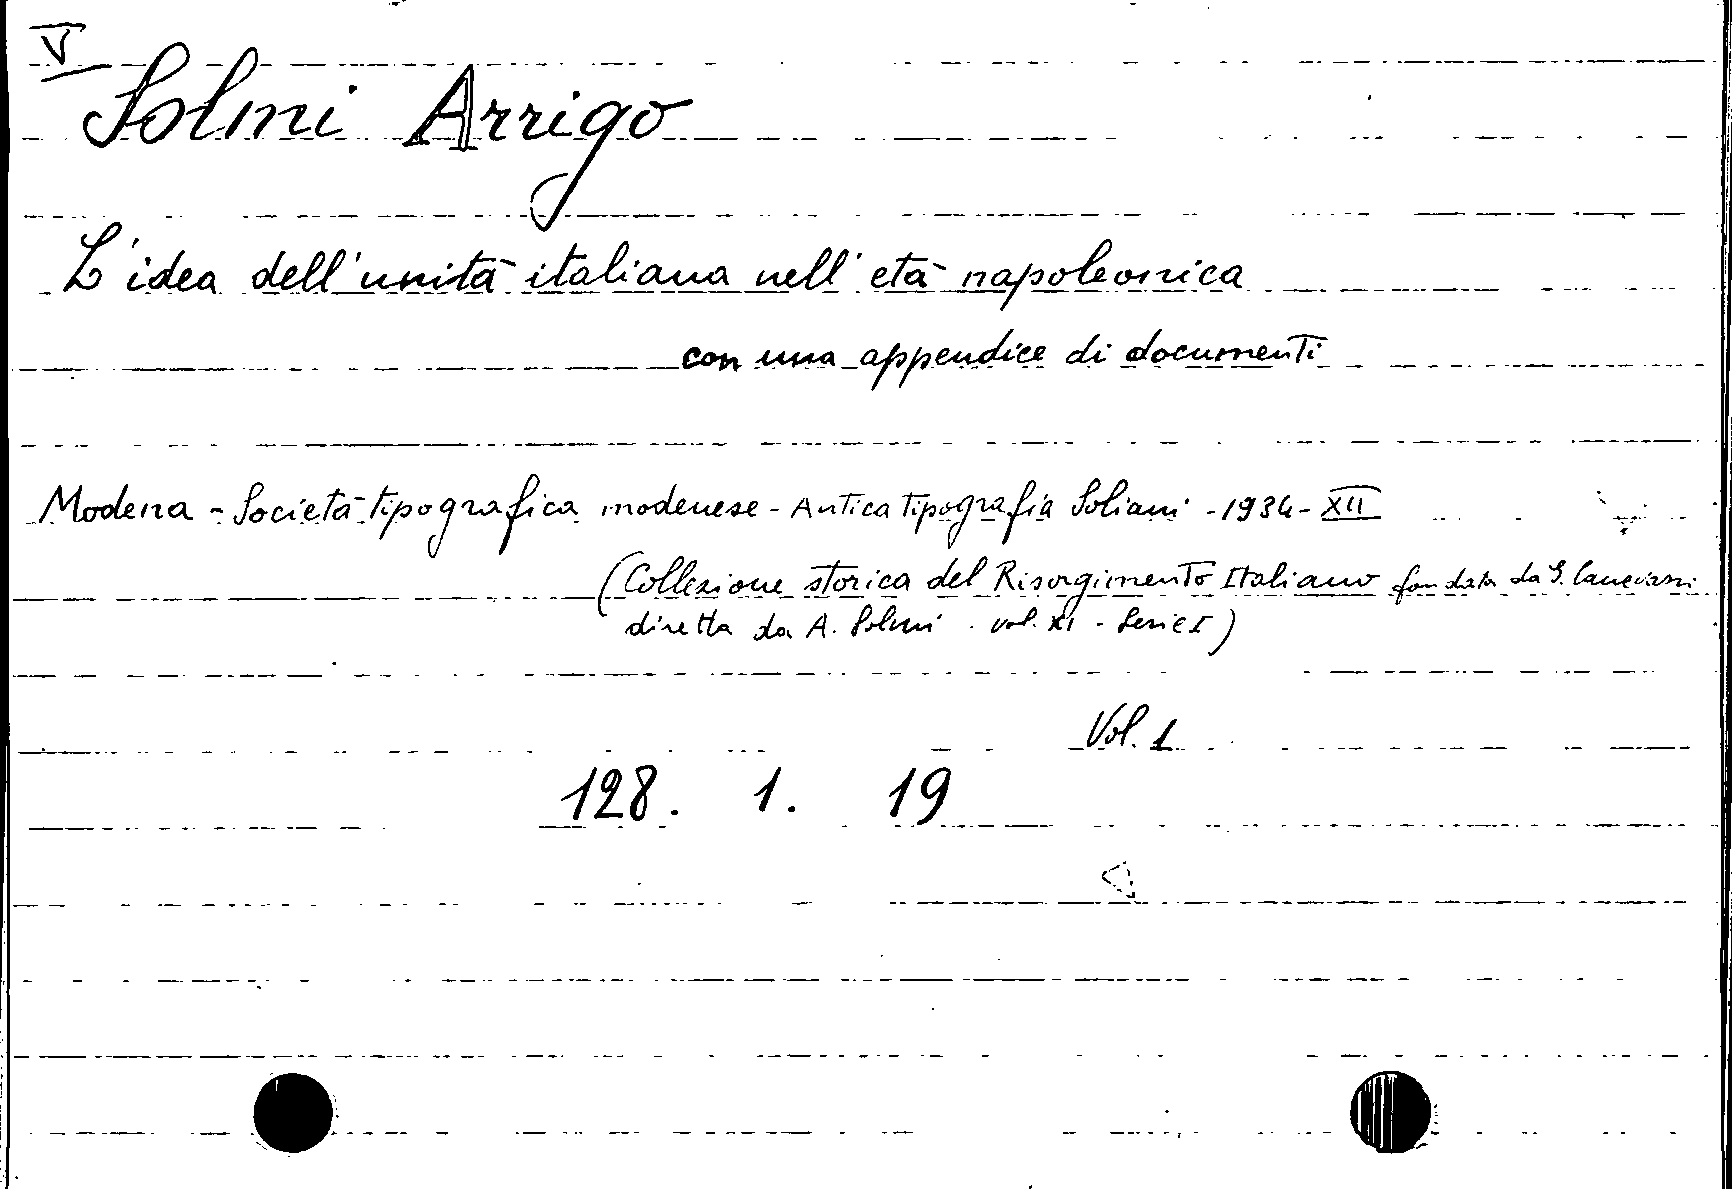 V
Solmi Arrigo
L'idea dell'unità italiana nell'età napoleonica
con una appendice di documenti
Modena - Società tipografica modenese - Antica tipografia Soliani - 1934 - XII
(Collezione storica del Risorgimento Italiano fondata da G. Canevazzi
diretta da A. Solmi - vol. XI - Serie I)
Vol. 1
128. 1. 19